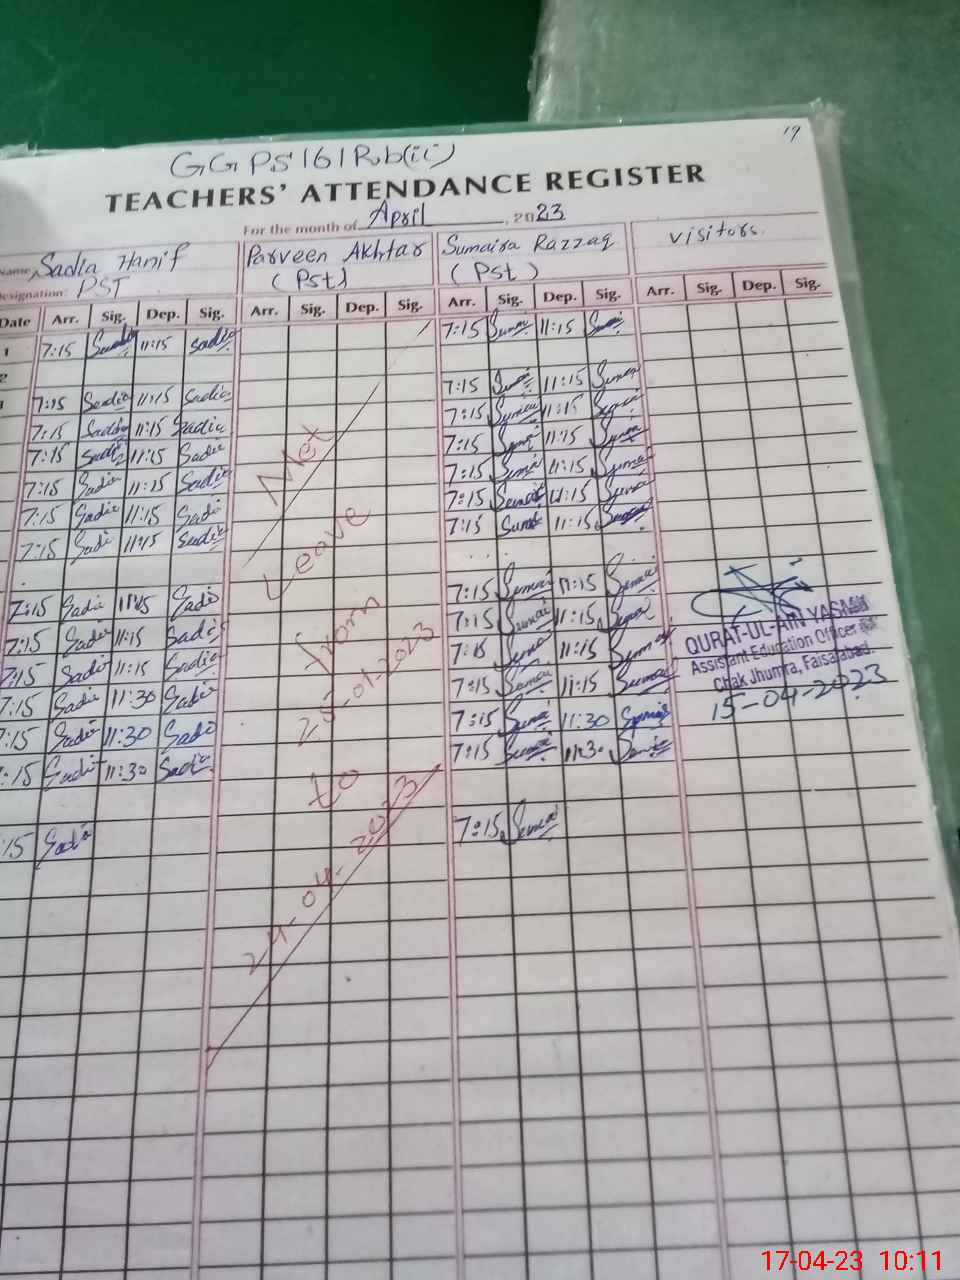 19
GGPS 161 R.b(ii)
TEACHERS' ATTENDANCE REGISTER
For the month of April, 2023
Name Sadia Hanif Parveen Akhtar Sumaira Razzaq visitors.
Designation: PST (Pst) (Pst)
Date Arr. Sig. Dep. Sig. Arr. Sig. Dep. Sig. Arr. Sig. Dep. Sig. Arr. Sig. Dep. Sig.
1 7:15 11:15 Sadia 7:15 Sumai 11:15 Sumai
2
7:15 Sadia 11:15 Sadia 7:15 Sumai 11:15 Sumai
7:15 Sadia 11:15 Sadia 7:15 Sumai 11:15 Sumai
7:15 Sadia 11:15 Sadia 7:15 Sumai 11:15 Sumai
7:15 Sadia 11:15 Sadia 7:15 Sumai 11:15 Sumai
7:15 Sadia 11:15 Sadia 7:15 Sumai 11:15 Sumai
7:15 Sadi 11:15 Sadia 7:15 Sumai 11:15 Sumai
7:15 Sadia 11:15 Sadia 7:15 Sumai 11:15 Sumai
7:15 Sadia 11:15 Sadia 7:15 Sumai 11:15 Sumai
7:15 Sadia 11:15 Sadia 7:15 Sumai 11:15 Sumai
7:15 Sadia 11:30 Sadia 7:15 Sumai 11:15 Sumai
7:15 Sadia 11:30 Sadi 7:15 Sumai 11:30 Sumai
7:15 Sadi 11:30 Sadia 7:15 Sumai 11:30 Sumai
:15 Sadia 7:15 Sumai
Met
Leave
from
25-01-2023
to
24-04-2023
QURAT-UL-AIN YASA
Assistant Education Officer
Chak Jhumra, Faisalabad.
15-04-2023
17-04-23 10:11